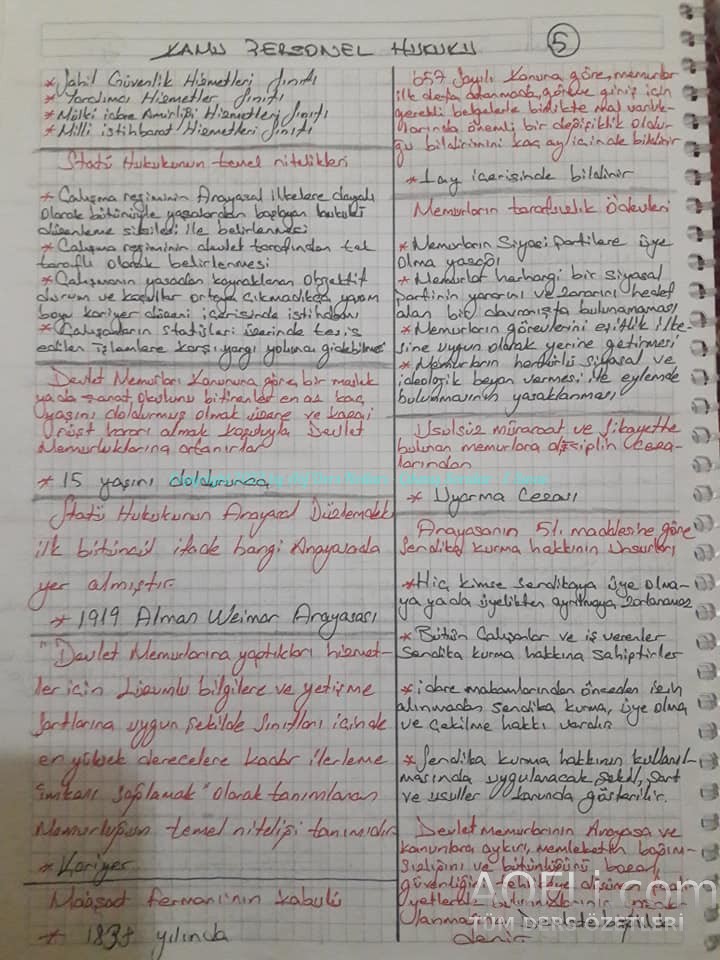 KAMU PERSONEL HUKUKU
5
* Sahil Güvenlik Hizmetleri Sınıfı
* Yardımcı Hizmetler Sınıfı
* Mülki idare Amirliği Hizmetleri Sınıfı
* Milli istihbarat Hizmetleri Sınıfı
Statü Hukukunun temel nitelikleri
* Çalışma rejiminin Anayasal ilkelere dayalı
olarak bütünüyle yasalardan başlayan hukuki
düzenleme silsilesi ile belirlenmesi
* Çalışma rejiminin devlet tarafından tek
taraflı olarak belirlenmesi
* Çalışmanın yasadan kaynaklanan Objektif
durum ve koşullar ortaya çıkmadıkça yaşam
boyu kariyer düzeni içerisinde istihdamı
* Çalışanların statüleri üzerinde tesis
edilen işlemlere karşı yargı yoluna gidebilme
Devlet Memurları Kanununa göre, bir meslek
ya da sanat okulunu bitirenler en az kaç
yaşını doldurmuş olmak üzere ve kazai
rüşt kararı almak koşuluyla Devlet
Memurluklarına atanırlar
* 15 yaşını doldurunca
Statü Hukukunun Anayasal Düzlemdeki
ilk bütüncül ifade hangi Anayasada
yer almıştır.
* 1919 Alman Weimar Anayasası
"Devlet Memurlarına yaptıkları hizmet-
ler için Lüzumlu bilgilere ve yetişme
şartlarına uygun şekilde sınıfları içinde
en yüksek derecelere kadar ilerleme
imkanı sağlamak" olarak tanımlanan
Memurluğun temel niteliği tanımıdır
* Kariyer
Maaşat fermanı'nın kabulü
* 1838 yılında
657 Sayılı Kanuna göre, memurlar
ilk defa atanmada, göreve giriş için
gerekli belgelerle birlikte mal varlık-
larında önemli bir değişiklik olduğu
bildirimini kaç ay içinde bildirir
* 1 ay içerisinde bildirir
Memurların tarafsızlık Ödevleri
* Memurların Siyasi Partilere üye
olma yasağı
* Memurlar herhangi bir siyasal
partinin yararını ve zararını hedef
alan bir davranışta bulunmaması
* Memurların görevlerini eşitlik ilke-
sine uygun olarak yerine getirmesi
* Memurların her türlü siyasal ve
ideolojik beyan vermesi ile eylemde
bulunmasının yasaklanması
Usulsüz müracaat ve şikayette
bulunan memurlara disiplin ceza-
larından
* Uyarma Cezası
Anayasanın 51. maddesine göre
Sendika kurma hakkının Unsurları
* Hiç kimse sendikaya üye olma-
ya ya da üyelikten ayrılmaya zorlanamaz
* Bütün Çalışanlar ve iş verenler
Sendika kurma hakkına sahiptirler
* idare makamlarından önceden izin
alınmadan sendika kurma, üye olma
ve çekilme hakkı vardır
* Sendika kurma hakkının kullanıl-
masında uygulanacak şekil, şart
ve usuller kanunda gösterilir.
Devlet memurlarının Anayasa ve
kanunlara aykırı, memleketin bağım-
sızlığını ve bütünlüğünü bozan,
denir
AOFLi.com
TÜM DERS ÖZETLERİ